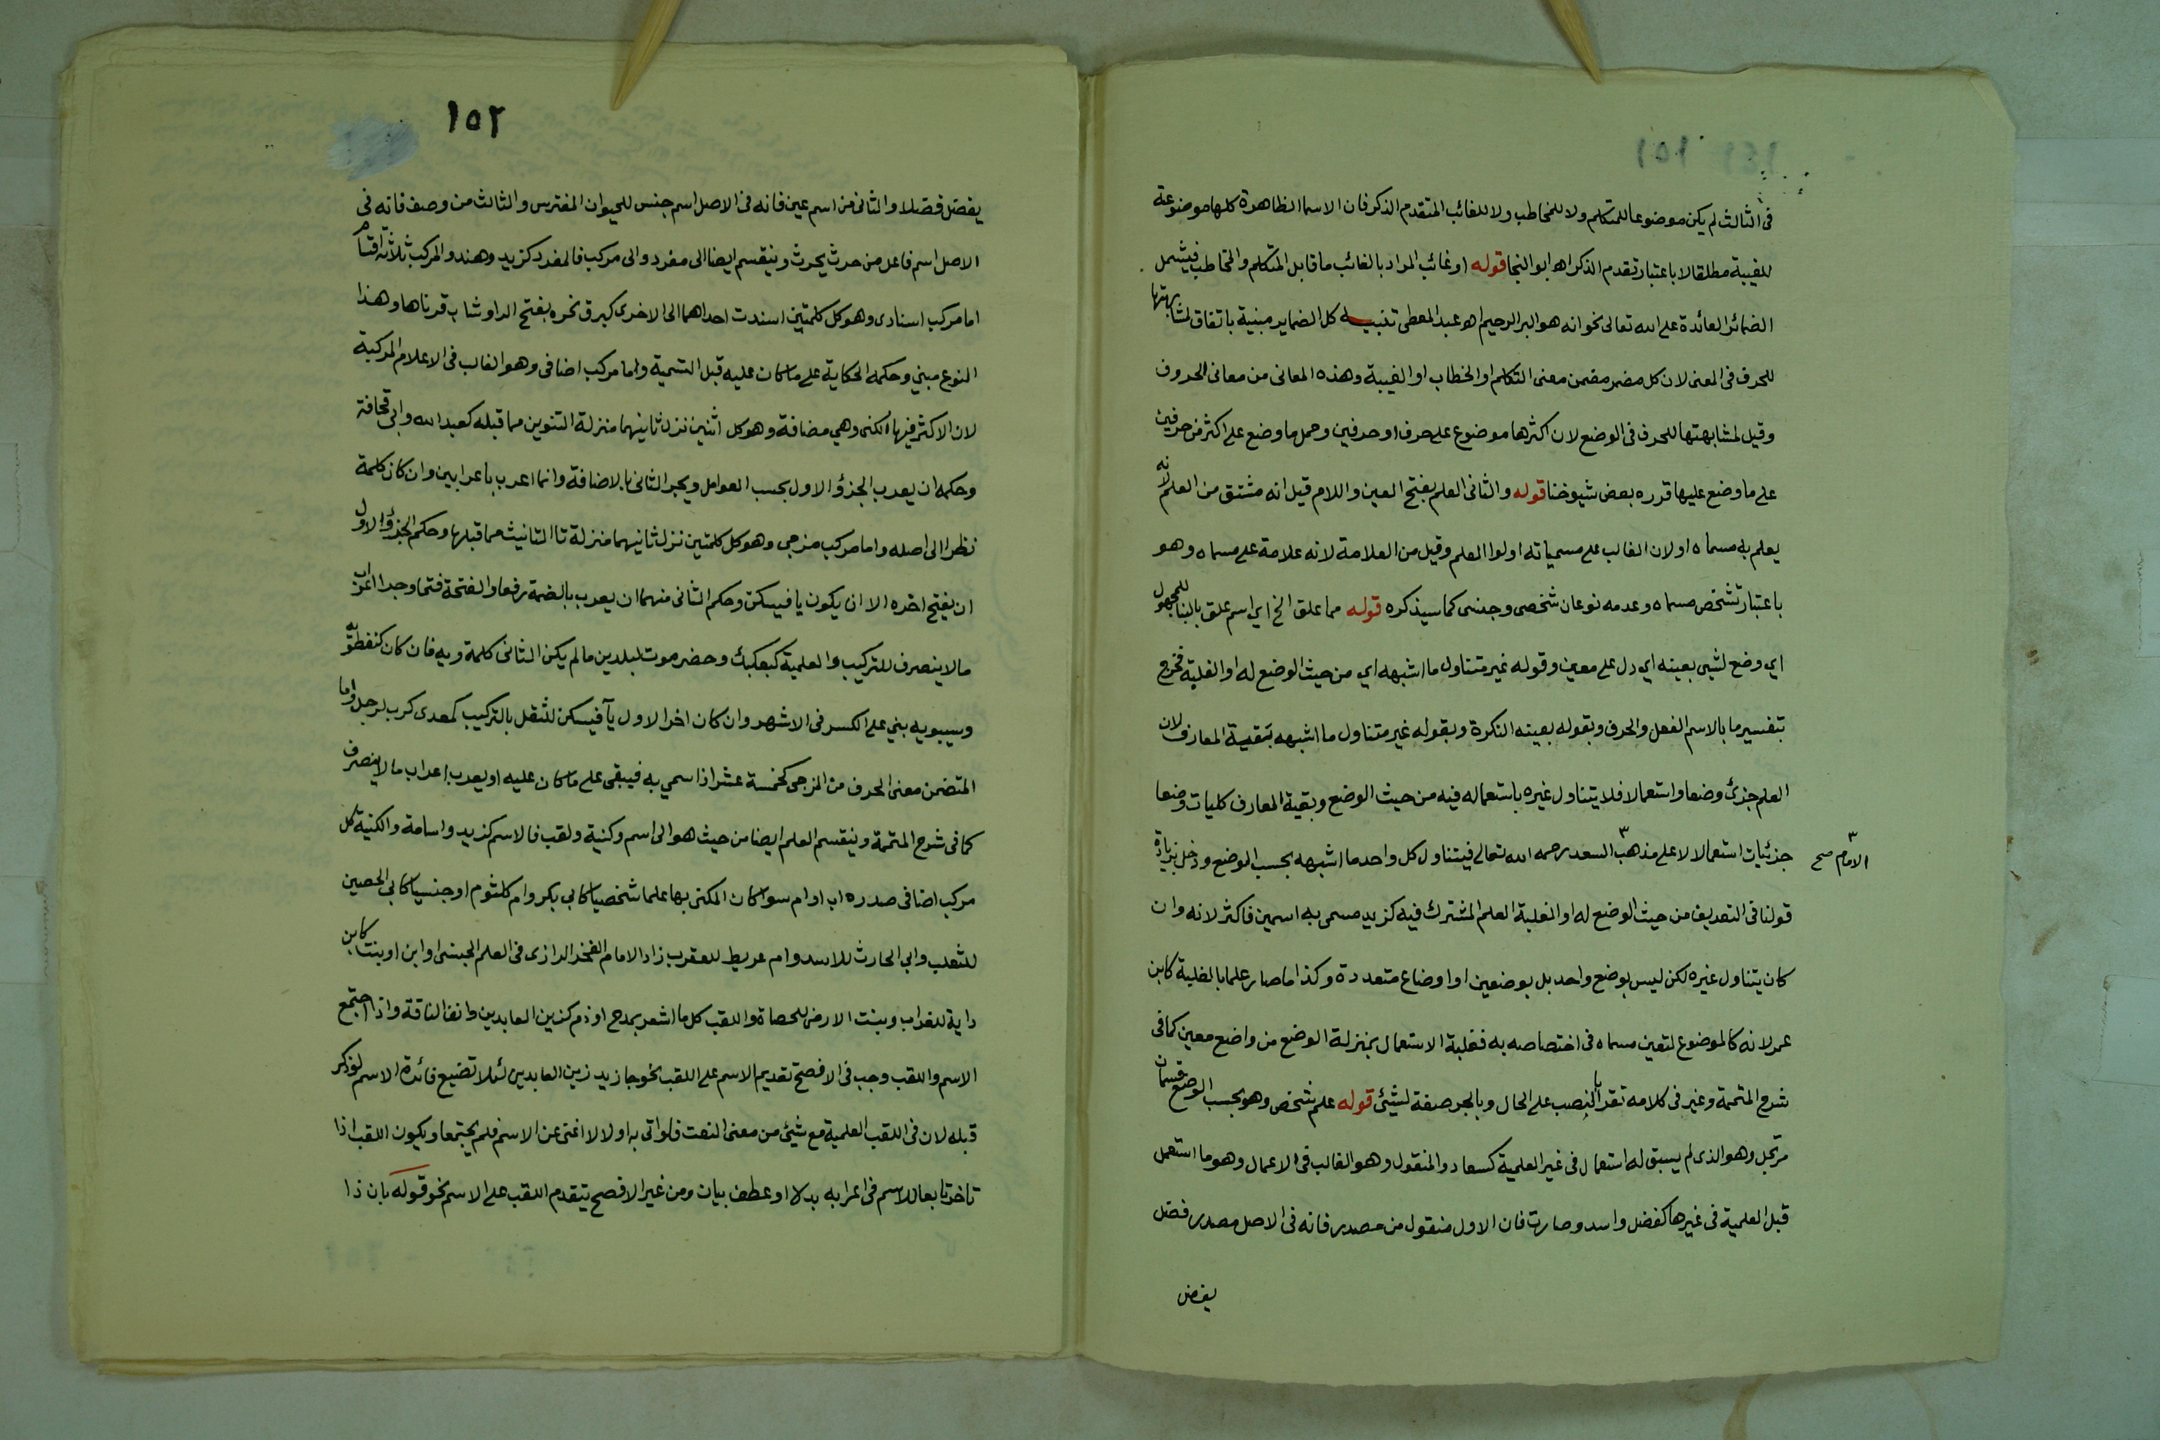 في الثالث لم يكن موضوعا للمتكلم ولا للمخاطب ولا للغائب المتقدم الذكر فان الاسما الظاهرة كلها موضوعة
للغيبة مطلقا لا باعتبار تقدم الذكر اهـ ابو النجا قوله او غائب المراد بالغائب ما قابل المتكلم والمخاطب فيشمل
الضمائر العائدة على الله تعالى نحو انه هو البر الرحيم اهـ عبد المعطى تنبيه كل الضماير مبنية باتفاق لمشابهتها
للحرف في المعنى لان كل مضمر مضمن معنى التكلم او الخطاب او الغيبة وهذه المعانى من معانى الحروف
وقيل لمشابهتها للحرف في الوضع لان اكثرها موضوع على حرف او حرفين وحمل ما وضع على اكثر من حرفين
على ما وضع عليها قرره بعض شيوخنا قوله والثانى العلم بفتح العين واللام قيل انه مشتق من العلم لانه
يعلم به مسماه او لان الغالب على مسمياته اولوا العلم وقيل من العلامة لانه علامة على مسماه وهو
باعتبار تشخص مسماه وعدمه نوعان شخصى وجنسى كما سيذكره قوله مما علق الخ اي اسم علق بالبنا للمجهول
اي وضع لشي بعينه اي دل على معين وقوله غير متناول ما اشبهه اي من حيث الوضع له او الغلبة فخرج
بتفسير ما بالاسم الفعل والحرف وبقوله بعينه النكرة وبقوله غير متناول ما اشبهه بقية المعارف لان
العلم جزئ وضعا واستعمالا فلا يتناول غيره باستعماله فيه من حيث الوضع وبقية المعارف كليات وضعا
جزئيات استعمالا لا على مذهب السعد رحمه الله تعالى فيتناول كل واحد ما اشبهه بحسب الوضع ودخل بزيادة
الامام صح
قولنا في التعريف من حيث الوضع له او الغلبة العلم المشترك فيه كزيد مسمى به اسمين فاكثر لانه وان
كان يتناول غيره لكن ليس بوضع واحد بل بوضعين او اوضاع متعددة وكذا ما صار علما بالغلبة كابن
عمر لانه كالموضوع لتعين مسماه في اختصاصه به فغلبة الاستعمال بمنزلة الوضع من واضع معين كما في
شرح المتممة وغير في كلامه تقرا بالنصب على الحال وبالجر صفة لشيئ قوله علم شخص وهو بحسب الوضع قسمان
مرتجل وهو الذى لم يسبق له استعمال في غير العلمية كسعاد والمنقول وهو الغالب في الاعمال وهو ما استعمل
قبل العلمية في غيرها كفضل واسد وحارث فان الاول منقول من مصدر فانه في الاصل مصدر فضل
يفضل
١٥٢
يفضل فضلا والثانى من اسم عين فانه في الاصل اسم جنس للحيوان المفترس والثالث من وصف فانه في
الاصل اسم فاعل من حرث يحرث وينقسم ايضا الى مفرد والى مركب فالمفرد كزيد وهند والمركب ثلاثة اقسام
اما مركب اسنادى وهو كل كلمتين اسندت احداهما الى الاخرى كبرق نحره بفتح الرا وشاب قرناها وهذا
النوع مبني وحكمه الحكاية على ما كان عليه قبل التسمية واما مركب اضافى وهو الغالب في الاعلام المركبة
لان الاكثر فيها الكنى وهي مضافة وهو كل اثنين نزل ثانيهما منزلة التنوين مما قبله كعبد الله وابى قحافة
وحكمه ان يعرب الجزؤ الاول بحسب العوامل ويجر الثانى بالاضافة وانما اعرب باعرابين وان كان كلمة
نظرا الى اصله واما مركب مزجى وهو كل كلمتين نزل ثانيهما منزلة تا التانيث مما قبلها وحكم الجزؤ الاول
ان يفتح اخره الا ان يكون يا فيسكن وحكم الثانى منهما ان يعرب بالضمة رفعا والفتحة فتحا وجرا اعراب
ما لا ينصرف للتركيب والعلمية كبعلبك وحضرموت لبلدين ما لم يكن الثانى كلمة ويه فان كان كنفطويه
وسيبويه بني على الكسر في الاشهر وان كان اخر الاول يآ فيسكن لثقل بالتركيب كمعدى كرب لرجل واما
المتضمن معنى الحرف من المزجى كخمسة عشر اذا سمي به فيبقى على ما كان عليه او يعرب اعراب ما لا ينصرف
كما في شرح المتممة وينقسم العلم ايضا من حيث هو الى اسم وكنية ولقب فالاسم كزيد واسامة والكنية كل
مركب اضافى صدره اب او ام سوا كان المكنى بها علما شخصيا كابي بكر وام كلثوم او جنسيا كابى الحصين
للثعلب وابي الحارث للاسد وام عريط للعقرب زاد الامام الفخر الرازى في العلم الجنسى او ابن او بنت كابن
داية للغراب وبنت الارض للحصاة واللقب كل ما اشعر بمدح او ذم كزين العابدين وانف الناقة واذا اجتمع
الاسم واللقب وجب في الافصح تقديم الاسم على اللقب نحو جا زيد زين العابدين لئلا تضيع فائدة الاسم لو ذكر
قبله لان في اللقب العلمية مع شيئ من معنى النعت فلو اتى به اولا لا اغنى عن الاسم فلم يجتمعا ويكون اللقب اذا
تاخر تابعا للاسم في اعرابه بدلا او عطف بيان ومن غير الافصح يتقدم اللقب على الاسم نحو قوله بان ذا